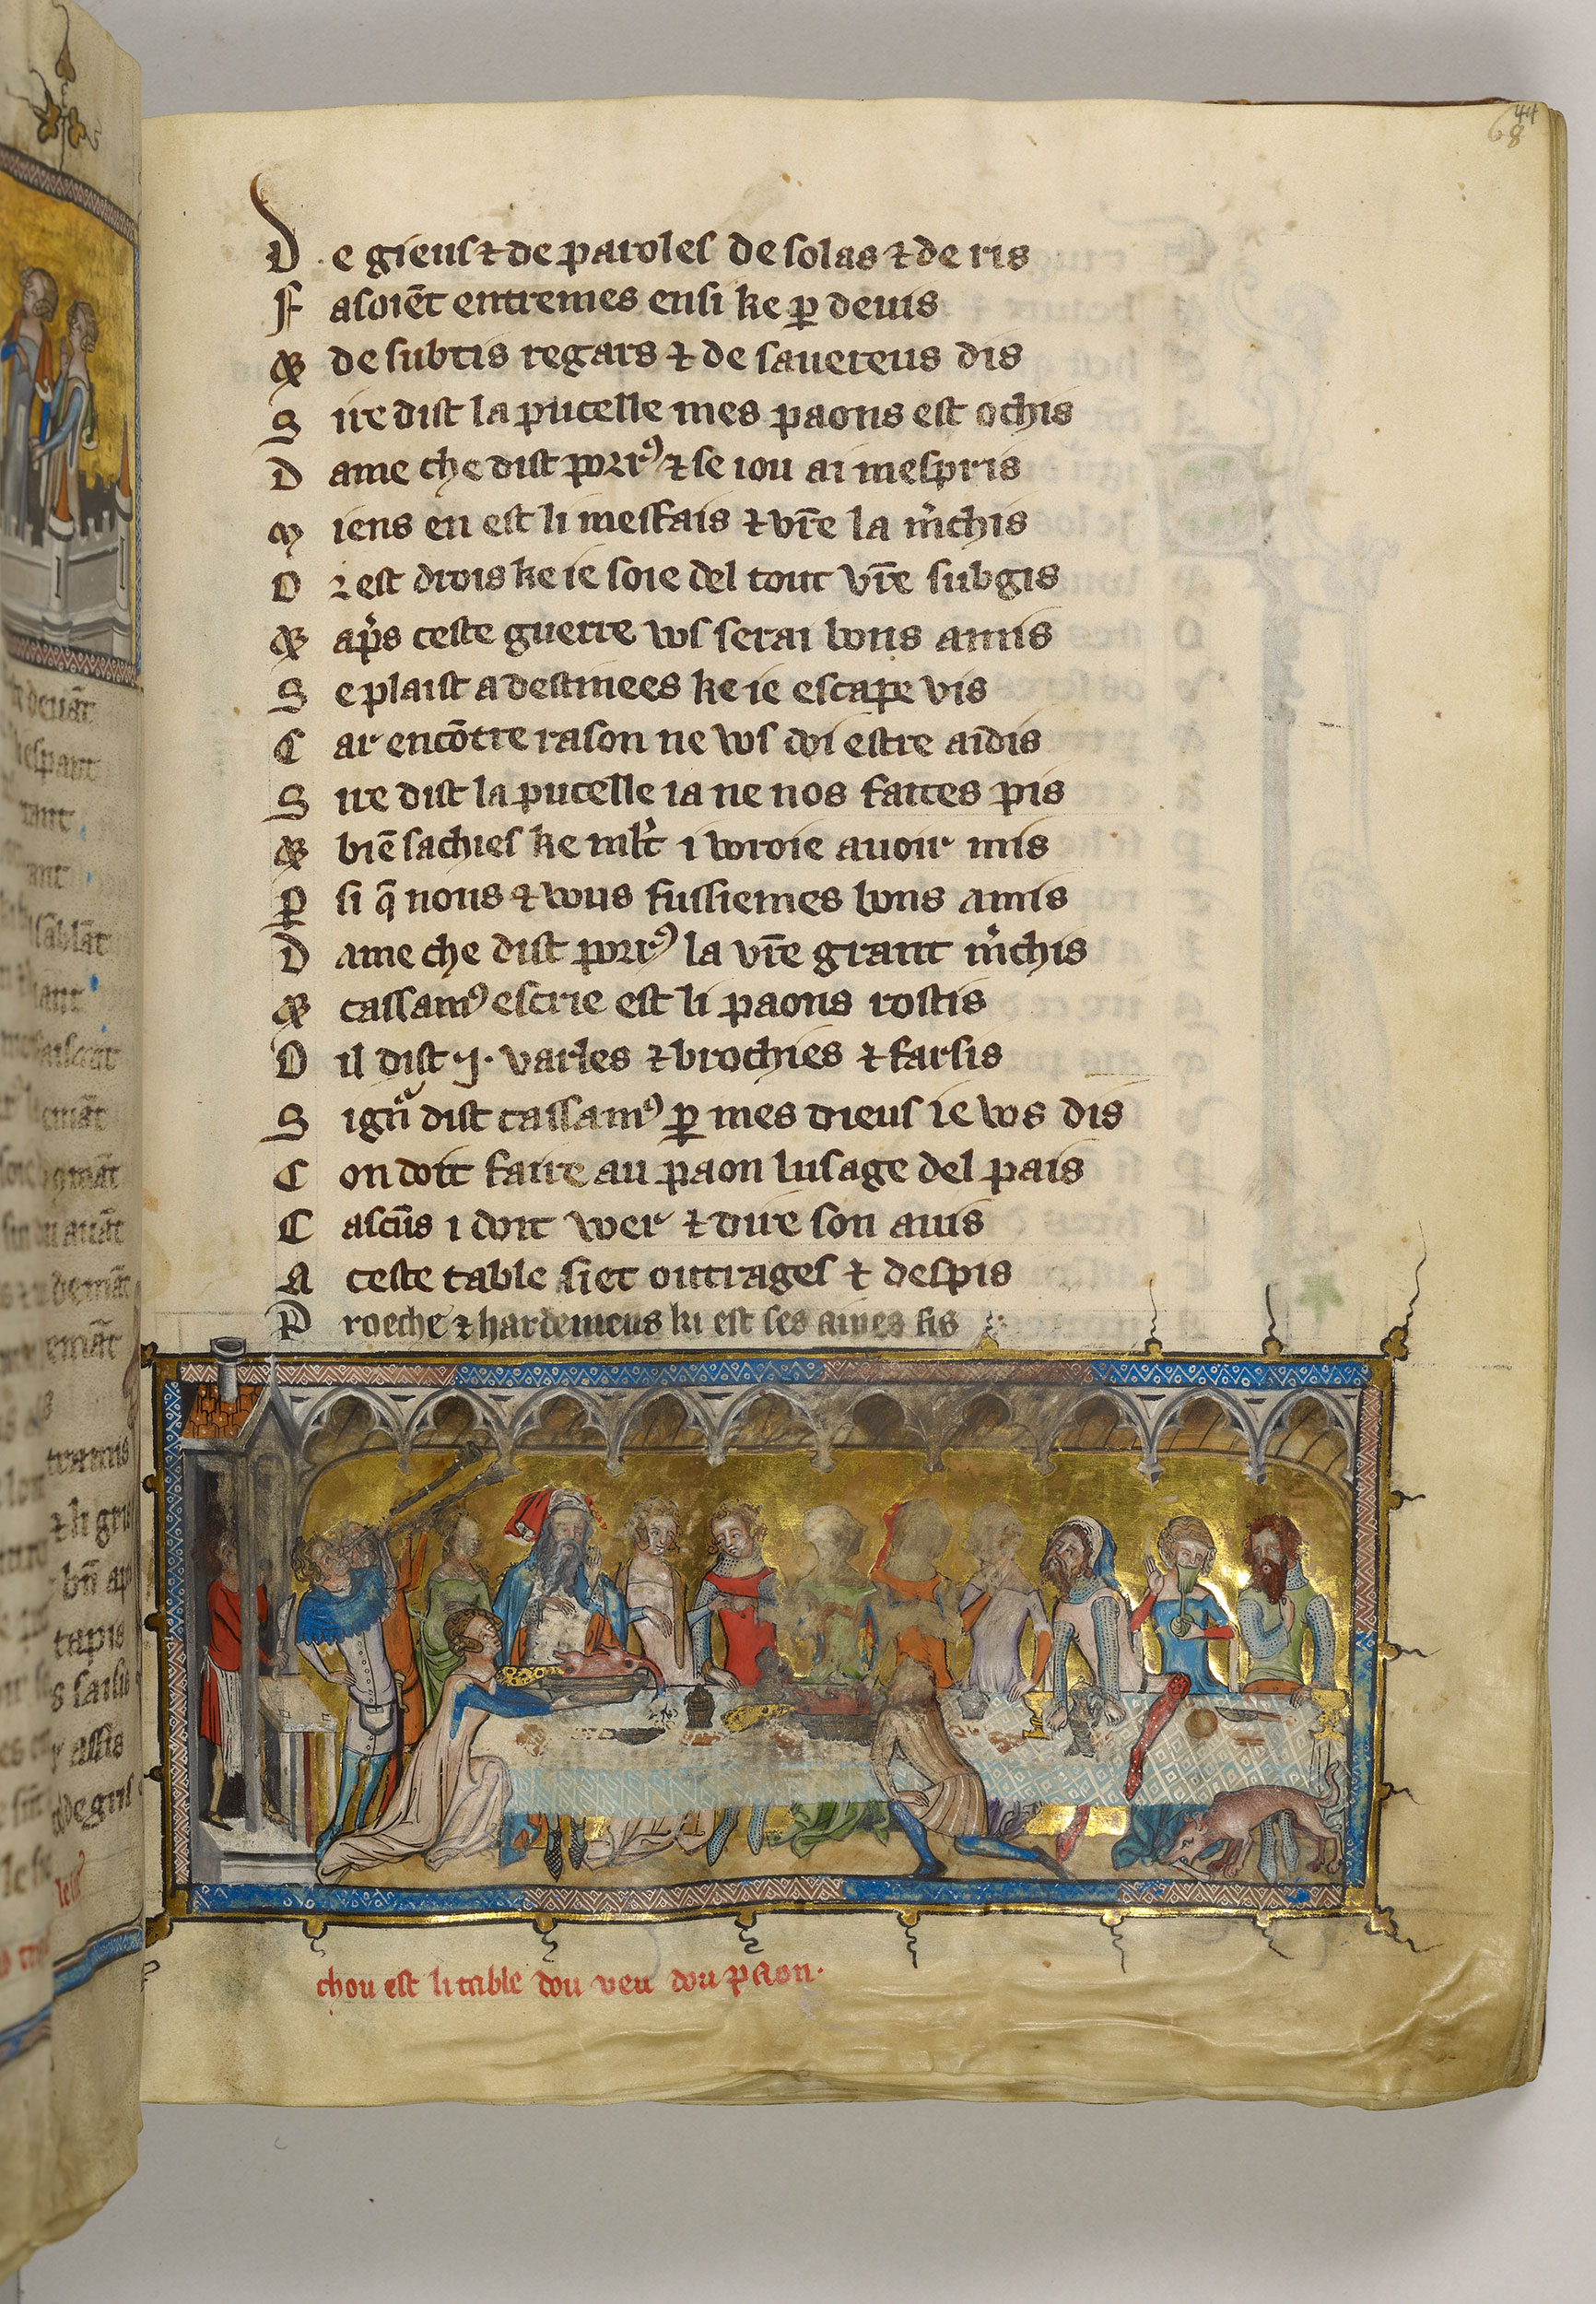 44
68
De gieus ⁊ de paroles de solas ⁊ de ris
Fasoiēt entremes ensi ke ꝑ deuis
⁊ de subtis regars ⁊ de sauereus dis
Sire dist la pucelle mes paons est ochis
Dame che dist porrꝰ ⁊ se iou ai mespris
Miens en est li mesfais ⁊ vr̄e la m̄chis
Or est drois ke ie soie del tout vr̄e subgis
⁊ ap̄s ceste guerre vos serai bons amis
Se plaist a destinees ke ie escape vis
Car encōtre raison ne vos doi estre aidis
Sire dist la pucelle ia ne nos faites pis
⁊ biē sachies ke ml̄t i voroie auoir mis
ꝑ si q̄ nous ⁊ vous fussiemes bons amis
Dame che dist porrꝰ la vr̄e grant m̄chis
⁊ cassamꝰ escrie est li paons rostis
Oil dist .j. varles ⁊ brochies ⁊ farsis
Sign̄ dist cassamꝰ ꝑ mes dieus ie vos dis
Con doit faire au paon lusage del pais
Cascūs i doit voer ⁊ dire son auis
A ceste table siet outrages ⁊ despis
Proeche ⁊ hardemens ki est ses
chou est li table dou veu dou paon.